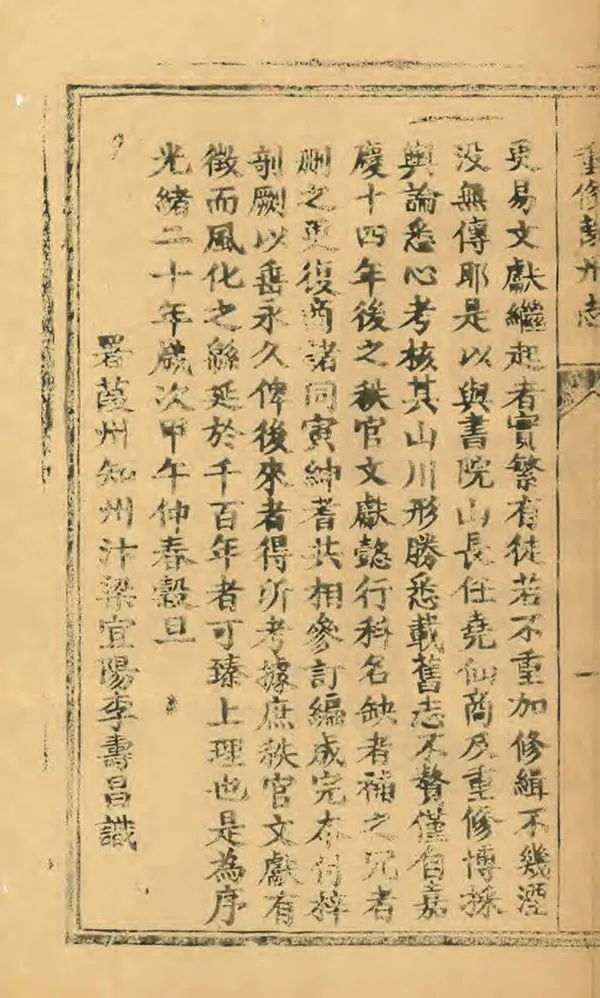 重修葭州志
一
更易文獻繼起者實繁有徒若不重加修緝不幾湮
没無傳耶是以與書院山長任堯仙商及重修博採
輿論悉心考核其山川形勝悉載舊志不贅僅自嘉
慶十四年後之秩官文獻懿行科名缺者補之冗者
刪之更復商諸同寅紳耆共相參訂編成完本付梓
剞劂以垂永久俾後來者得所考據庶秩官文獻有
徵而風化之緜延於千百年者可臻上理也是為序
光緒二十年歲次甲午仲春穀旦
署葭州知州汴梁宜陽李壽昌識